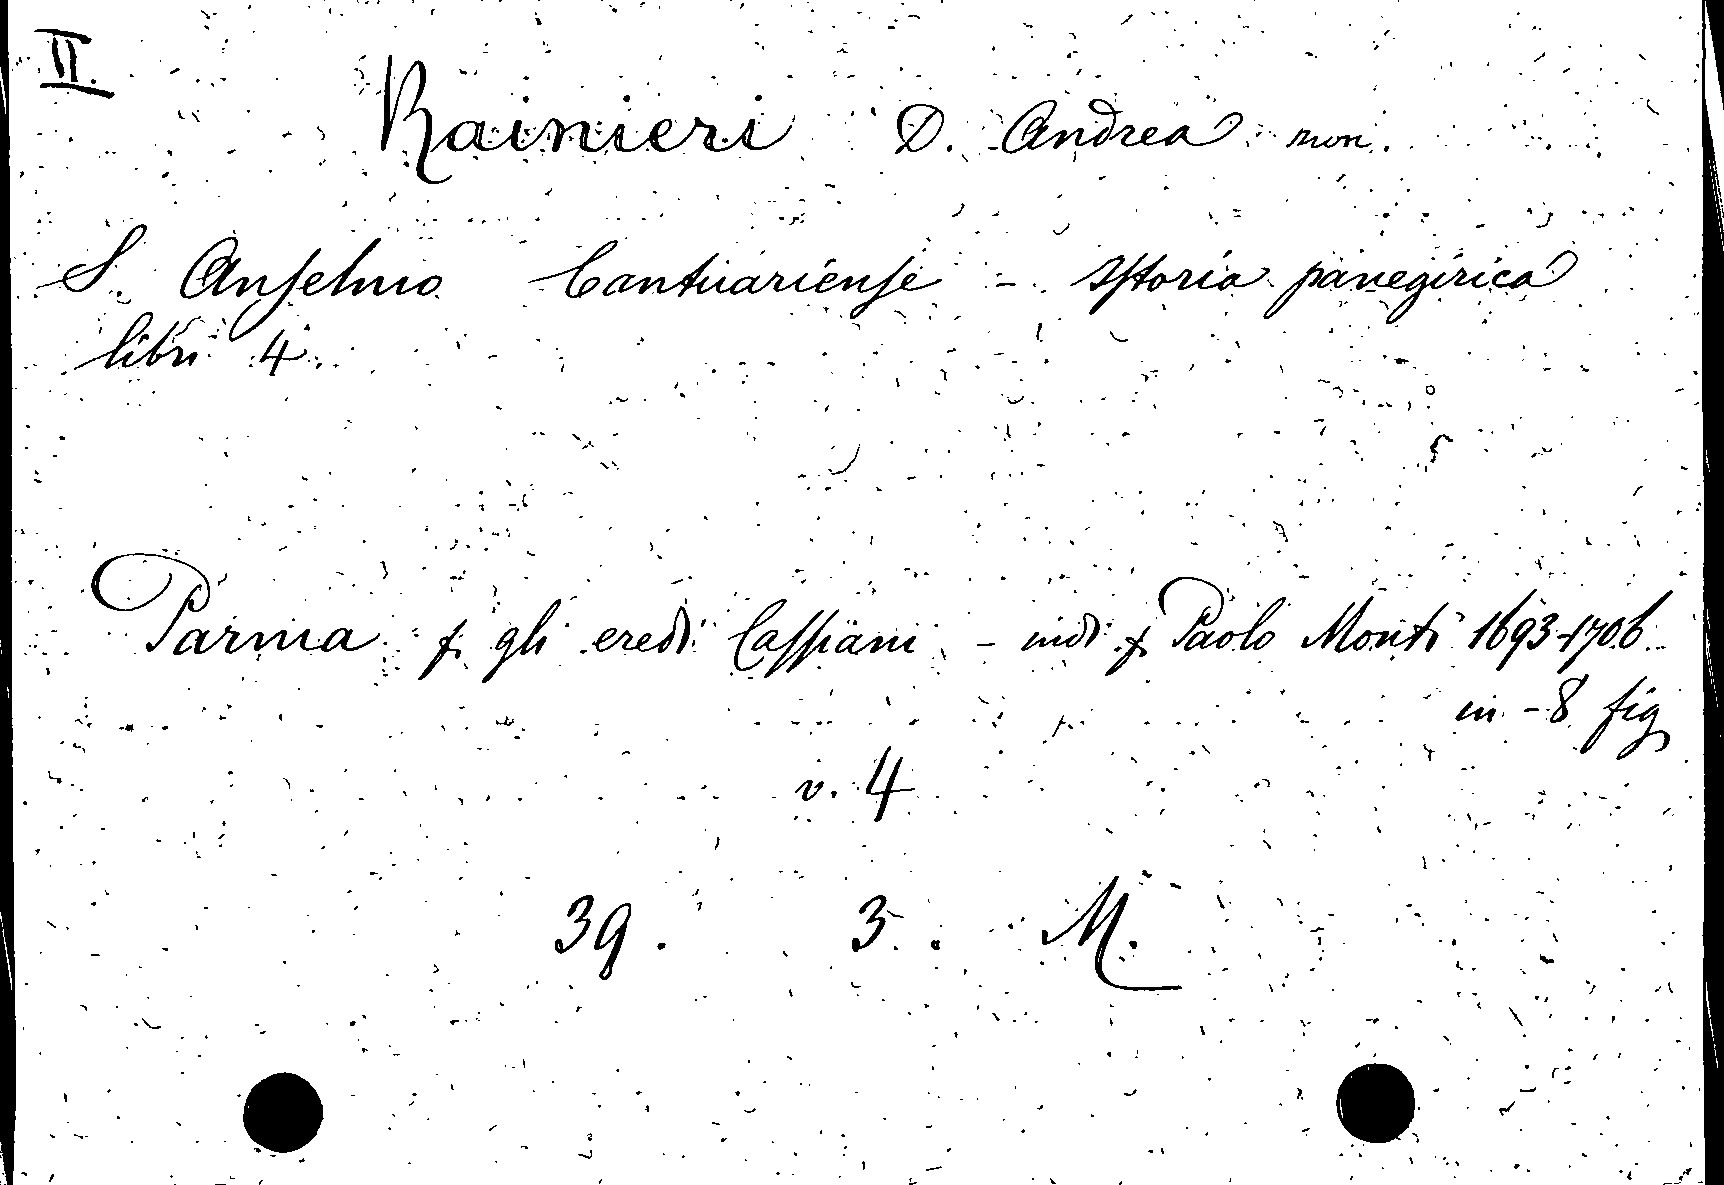 II.
Rainieri D. Andrea mon.
S. Anselmo Cantuariense - Istoria panegirica
libri 4.
Parma p. gli eredi Cassiani - indi p. Paolo Monti 1693-1706
in-8 fig
v. 4
39. 3. M.